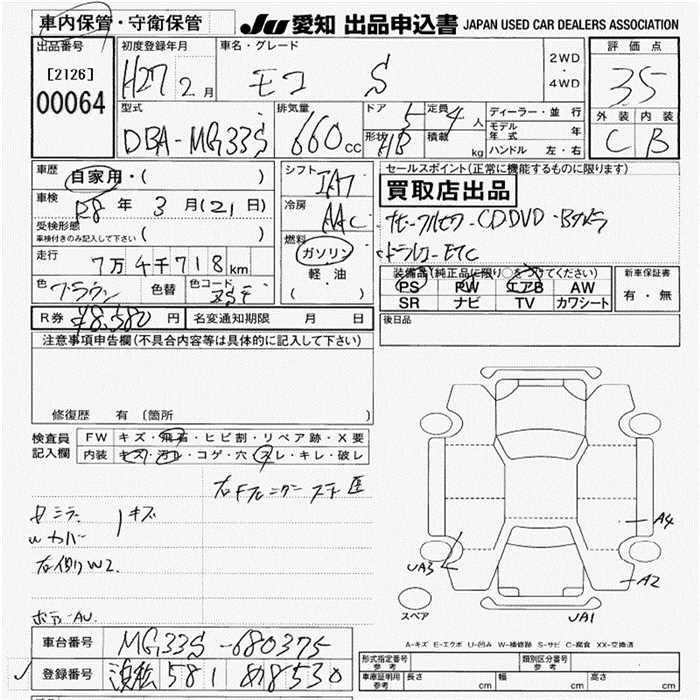 車内保管・守衛保管
JU 愛知 出品申込書 JAPAN USED CAR DEALERS ASSOCIATION
出品番号
[2126]
00064
初度登録年月
H27 2月
車名・グレード
モコ S
2WD
・
4WD
評価点
35
外装 内装
C B
型式
DBA-MG33S
排気量
660 cc
ドア 5
形状 HB
定員 4 人
積載 kg
ディーラー・並行
モデル年式 年
ハンドル 左・右
車歴
自家用・( )
車検
R8 年 3 月(21日)
受検形態
車検付きのみ記入して下さい ( )
走行
7万4千718km
色 ブラウン 色替 色コード
シフト
IAT
冷房
AAC
燃料
ガソリン
軽油
( )
セールスポイント(正常に機能するものに限ります)
買取店出品
ナビ-フルセグ-CDDVD-Bカメラ
・ドラレコ-ETC
装備品(純正品に限り○をつけてください)
PS PW エアB AW
SR ナビ TV カワシート
新車保証書
有・無
R券 ¥8,580 円 名変通知期限 月 日
後日品
注意事項申告欄(不具合内容等は具体的に記入して下さい)
修復歴 有 〔箇所 〕
検査員記入欄
FW キズ・飛石・ヒビ割・リペア跡・X要
内装 キズ・汚レ・コゲ・穴・スレ・キレ・破レ
右Fフェンダー
ミラー キズ
カバー
右側リW2
A4
A2
UA3
UA1
スペア
A-キズ E-エクボ U-凹み W-補修跡 S-サビ C-腐食 XX-交換済
車台番号 MG33S-680375
登録番号 浜松 581 8530
形式指定番号 参考
類別区分番号 参考
車庫証明用 参考 長さ cm 幅 cm 高さ cm